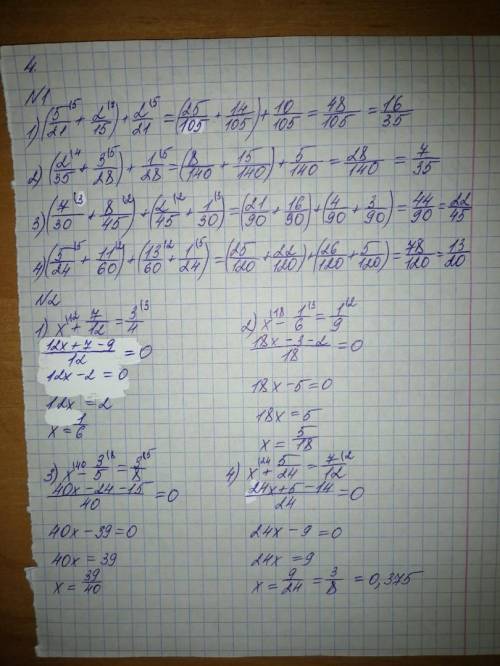 4.
№1
1) (5/21 |5 + 2/15 |7) + 2/21 |5 = (25/105 + 14/105) + 10/105 = 48/105 = 16/35
2) (2/35 |4 + 3/28 |5) + 1/28 |5 = (8/140 + 15/140) + 5/140 = 28/140 = 7/35
3) (7/30 |3 + 8/45 |2) + (2/45 |2 + 1/30 |3) = (21/90 + 16/90) + (4/90 + 3/90) = 44/90 = 22/45
4) (5/24 |5 + 11/60 |2) + (13/60 |2 + 1/24 |5) = (25/120 + 22/120) + (26/120 + 5/120) = 78/120 = 13/20
№2
1) x |12 + 7/12 = 3/4 |3
(12x + 7 - 9)/12 = 0
12x - 2 = 0
12x = 2
x = 1/6
2) x |18 - 1/6 |3 = 1/9 |2
(18x - 3 - 2)/18 = 0
18x - 5 = 0
18x = 5
x = 5/18
3) x |40 - 3/5 |8 = 3/8 |5
(40x - 24 - 15)/40 = 0
40x - 39 = 0
40x = 39
x = 39/40
4) x |24 + 5/24 = 7/12 |2
(24x + 5 - 14)/24 = 0
24x - 9 = 0
24x = 9
x = 9/24 = 3/8 = 0,375